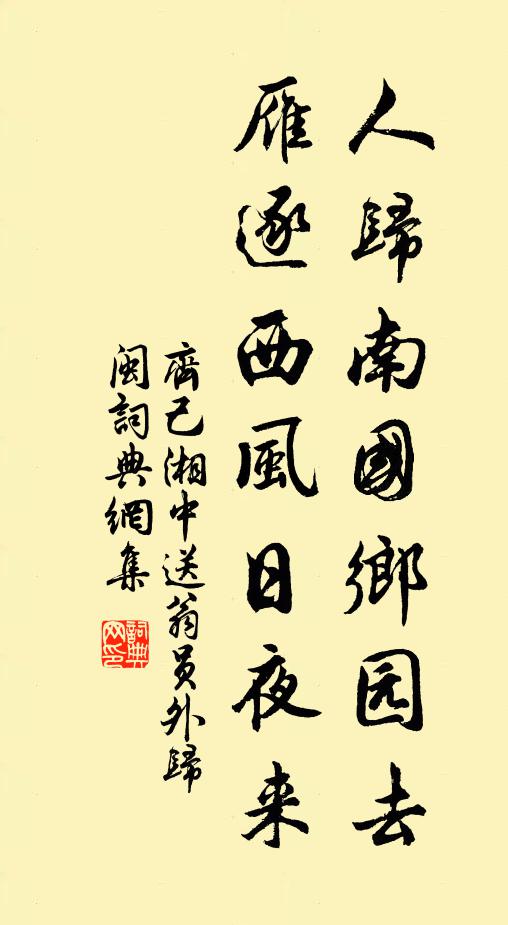 人歸南國鄉园去
雁逐西風日夜来
齊己湘中送翁员外歸
閩詞典網集
詞典网印